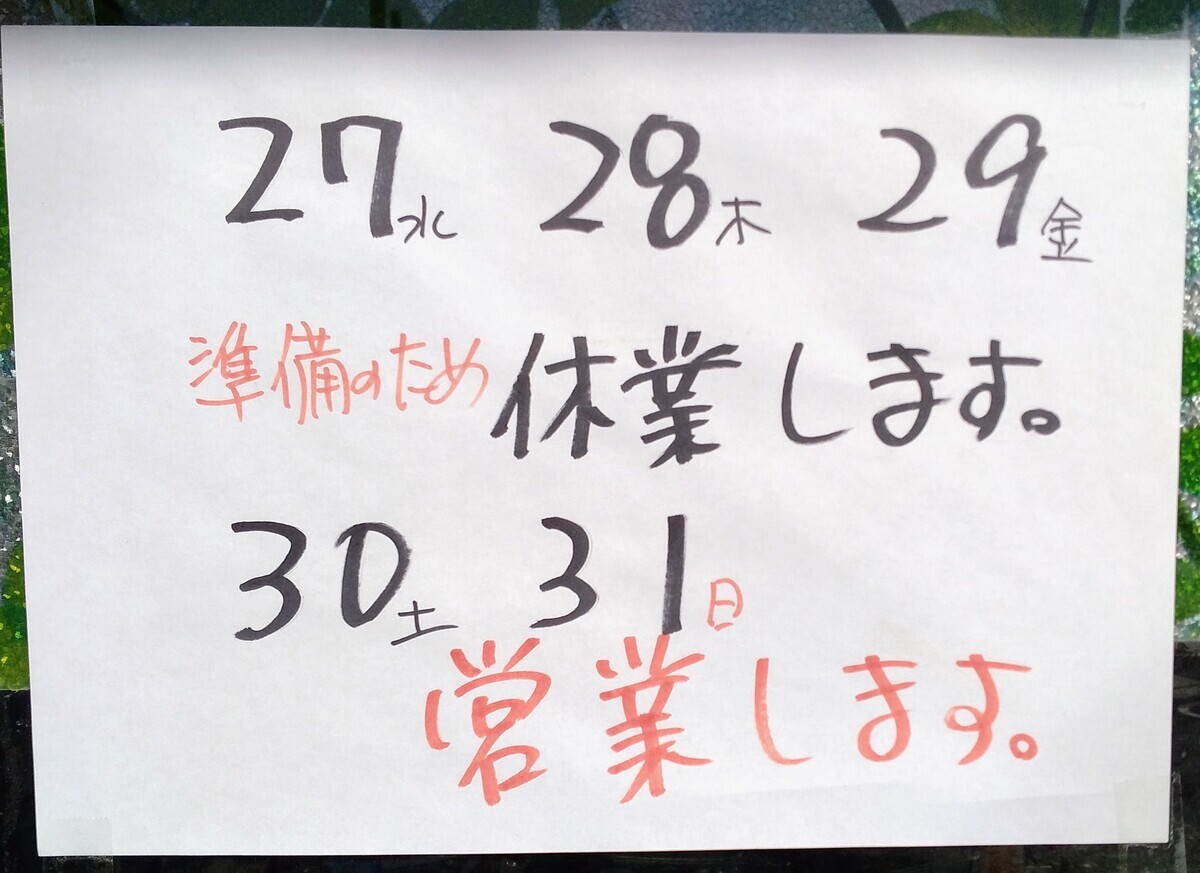 27水 28木 29金
準備のため休業します。
30土 31日
営業します。